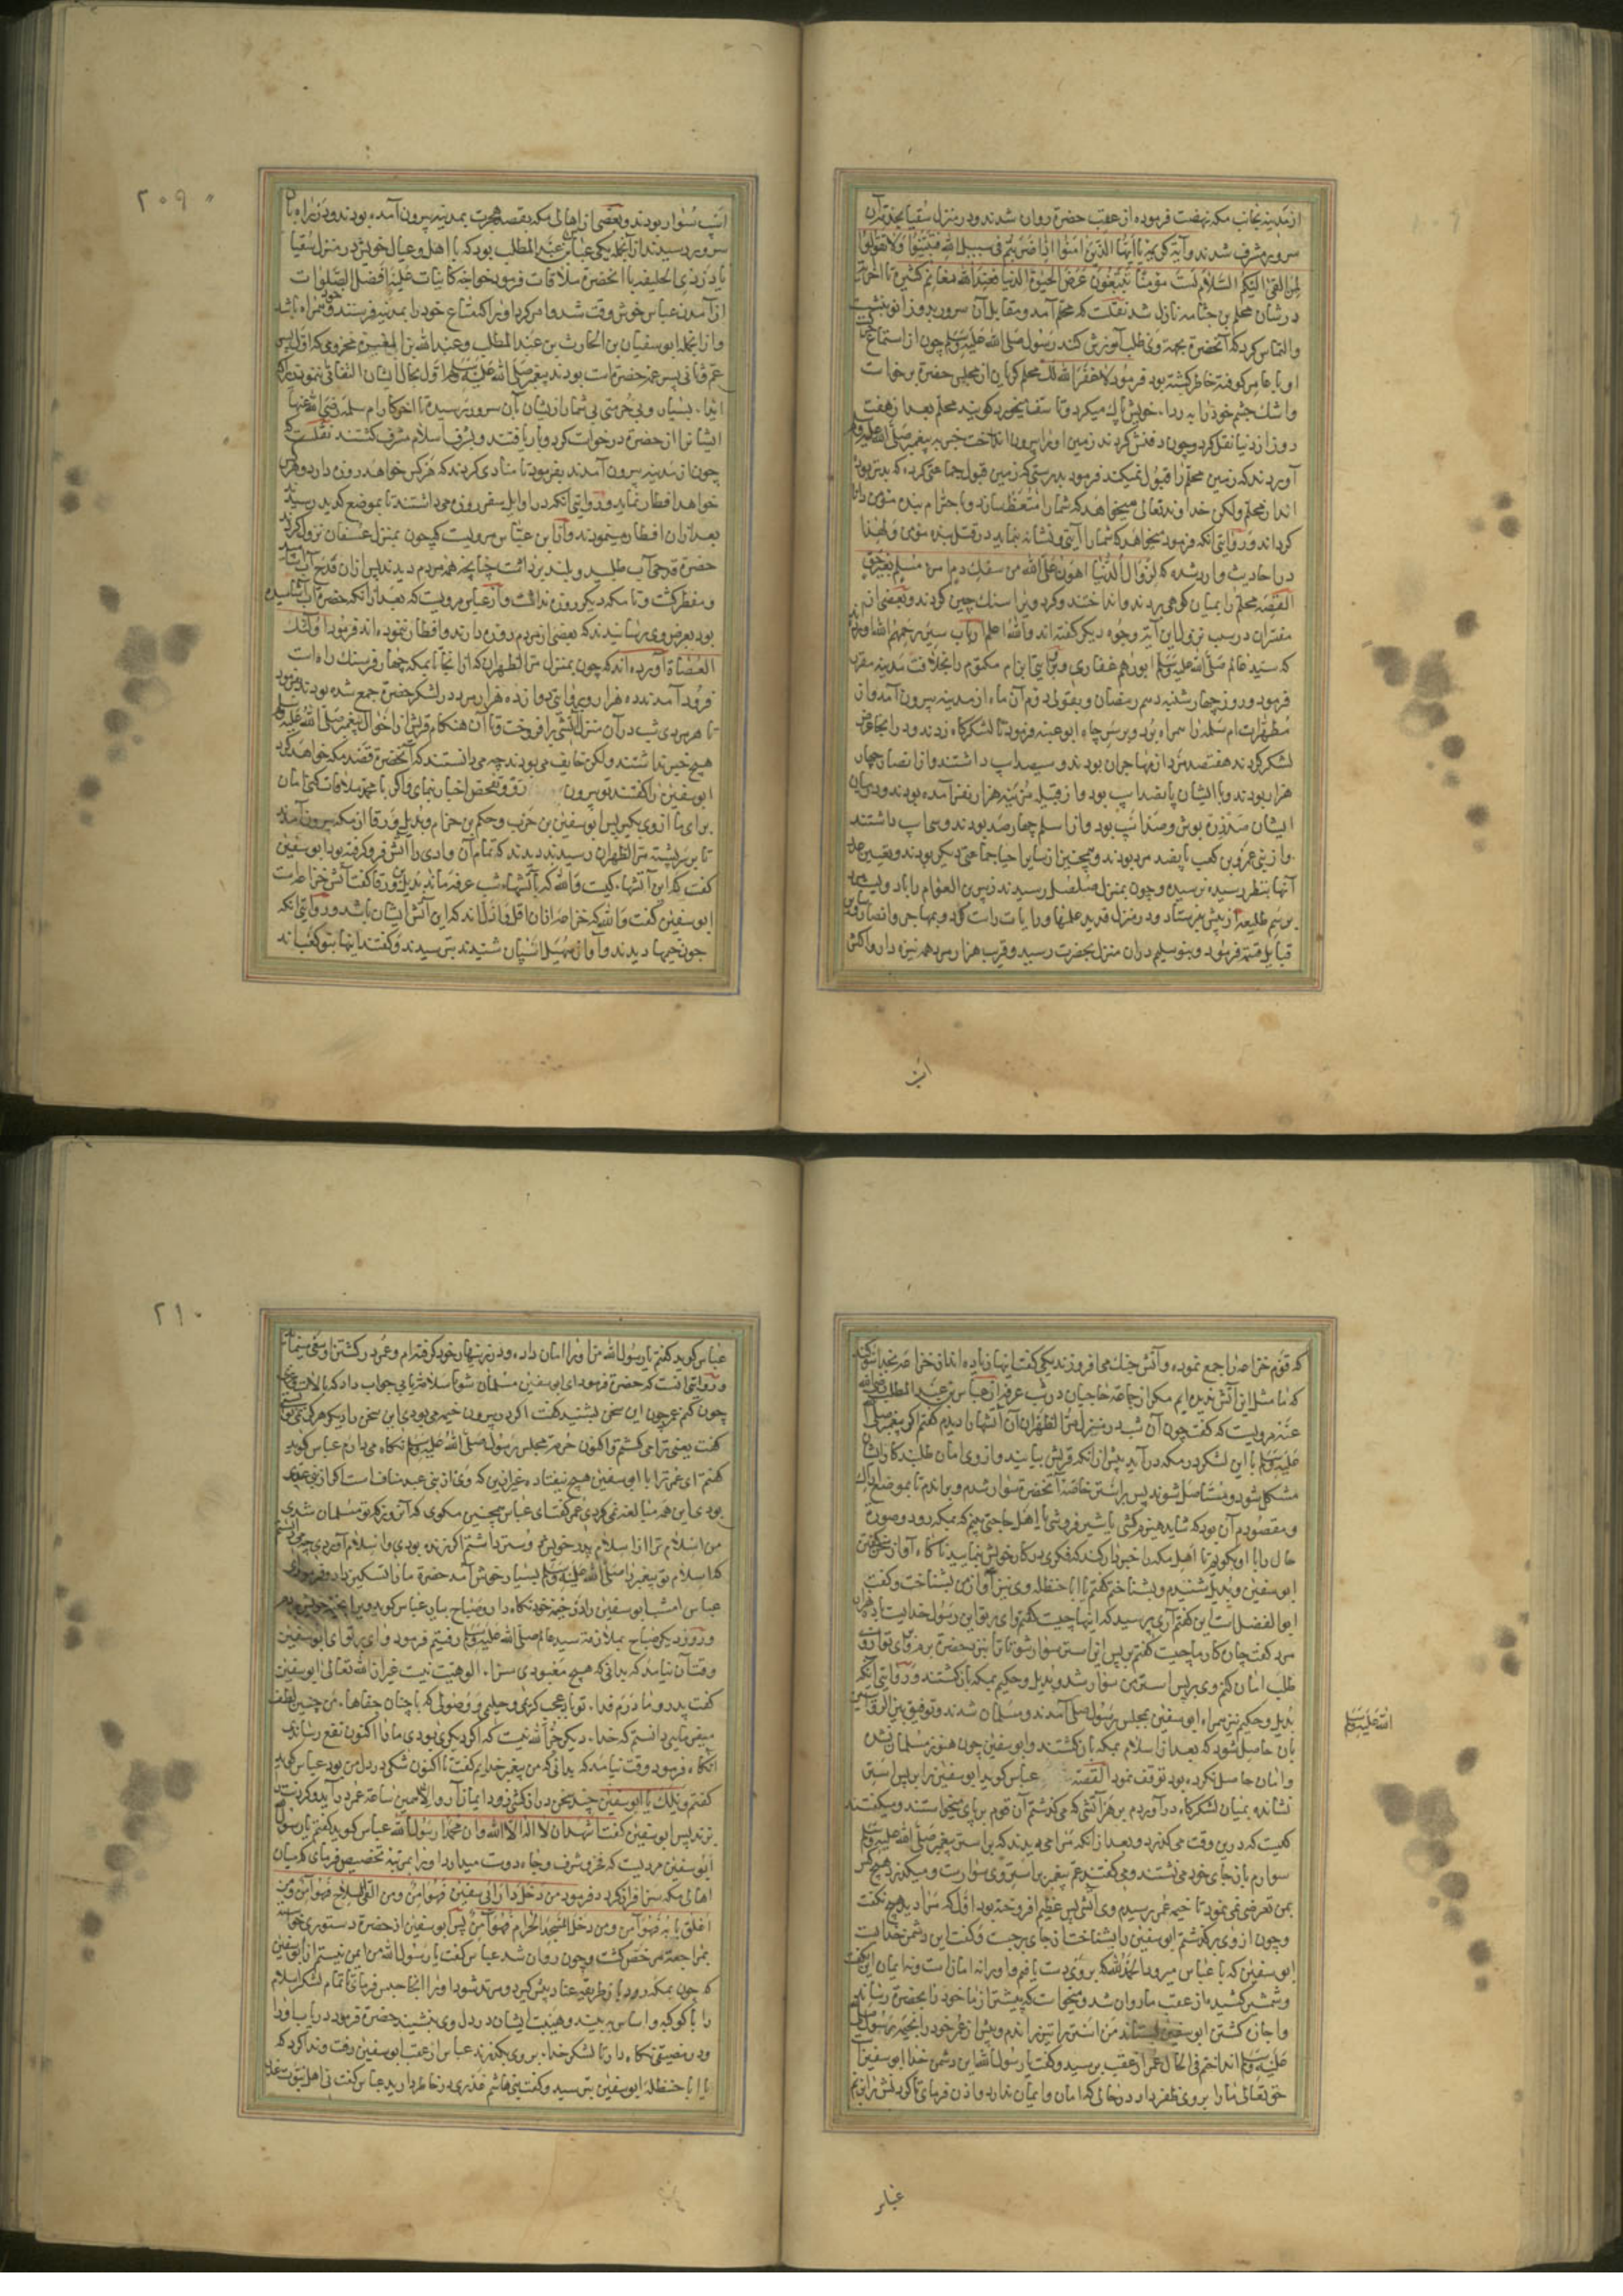 از مدینه بجانب مکه نهضت فرموده از عقب حضرة روان شدند و در منزل سقیا بخدمة آن
سرور مشرف شدند و آیة کریمه یا ایها الذین امنوا اذا ضربتم فی سبیل الله فتبینوا ولا تقولوا
لمن القی الیکم السلام لست مؤمنا تبتغون عرض الحیوة الدنیا فعند الله مغانم کثیرة تا اخر آیة
در شان محلم بن جثامه نازل شد نقلست که محلم آمد و مقابل آن سرور بدو زانو بنشست
والتماس کرد که آنحضرة بجهة وی طلب آمرزش کند رسول صلی الله علیه وسلم چون از استماع
او با عامر کوفته خاطر کشته بود فرمود لا غفر الله لک محلم کریان از مجلس حضرة برخاست
واشک چشم خود را به ردا خویش پاک میکرد و تا سقیا نخورد کویند محلم بعد از هفت
روز از دنیا نقل کرد و چون دفنش کردند زمین او را بیرون انداخت خبر به پیغمبر صلی الله علیه وسلم
آوردند که زمین محلم را قبول نمیکند فرمود بدرستی که زمین قبول جماعتی کرده که بدتر بوده
اند از محلم ولکن خداوند تعالی میخواهد که شما را متعظ سازد و با حترام بنده مؤمن دانا
کرداند و روایتی آنکه فرمود میخواهد که شما را آیتی و نشانه بنماید در قتل بنده مؤمن ولهذا
در احادیث وارد شده که لزوال الدنیا اهون علی الله من سفک دم امرء مسلم بغیر حق
القصه محلم را بمیان کوهی بردند و انداختند و کرد و برا سنک چین کردند و بعضی از
مفسران در سبب نزول این آیة وجوه دیکر کفته اند والله اعلم ارباب سیر رحمهم الله آورده اند
که سید عالم صلی الله علیه وسلم ابو رهم غفاری و بروایتی ابن ام مکتوم را بخلافت مدینه مقرر
فرمود و روز چهارشنبه دهم رمضان و بقولی دوم آن ماه از مدینه بیرون آمد و از
مطهرات ام سلمه را همراه برد و بر سر چاه ابو عنبه فرمود تا لشکرکاه زدند و در آنجا عرض
لشکر کردند هفتصد مرد از مهاجران بودند و سیصد اسپ داشتند و از انصار چهار
هزار بودند و با ایشان پانصد اسپ بود و از قبیله مزینه هزار نفر آمده بودند و در میان
ایشان صد زره پوش و صد اسپ بود و از اسلم چهار صد بودند و سی اسپ داشتند
و از بنی عمرو بن کعب پانصد مرد بودند و همچنین از سایر احیا جماعتی دیکر بودند و تعیین عدد
آنها بنظر رسیده نرسیده و چون بمنزل صلصل رسیدند زبیر بن العوام را با دویست مرد
برسم طلیعه از پیش بفرستاد و در منزل قدید علمها و رایات راست کرد و بمهاجر و انصار و بر
قبایل قسمة فرمود و بنو سلیم دران منزل بحضرت رسید و قریب هزار مرد همه نیزه دار و اکثر
اسپ
اسپ سوار بودند و بعضی از اهالی مکه بقصد هجرت بمدینه بیرون آمده بودند و در راه بآن
سرور رسیدند از آنجمله یکی عباس بن عبد المطلب بود که با اهل و عیال خویش در منزل سقیا
یا در ذی الحلیفه با آنحضرة ملاقات فرمود خواجه کاینات علیه افضل الصلوات
از آمدن عباس خوش وقت شد و امر کرد او را که متاع خود را بمدینه فرستد و خود همراه باشد
و از آنجمله ابو سفیان بن الحارث بن عبد المطلب و عبد الله بن المغیره مخزومی که اول پسر
عم و ثانی پسر عمه حضرة است بودند پیغمبر صلی الله علیه وسلم اول بحال ایشان التفاتی ننمود زیرا که
ایذا بسیار و بی حرمتی بی شمار از ایشان بآن سرور رسیده تا آخر کار ام سلمه رضی الله عنها
ایشانرا از حضرة درخواست کرد و بار یافتند و بشرف اسلام مشرف کشتند نقلست که
چون از مدینه بیرون آمدند بفرمود تا منادی کردند که هر کس خواهد روزه دارد و هر کس
خواهد افطار نماید و روایتی آنکه در اوایل سفر روزه می داشتند تا بموضع کدید رسیدند
بعد ازان افطار مینمودند و از ابن عباس مرویست که چون بمنزل عسفان نزول کردند
حضرة قدحی آب طلبید و بلند برداشت چنانچه همه مردم دیدند پس ازان قدح آب آشامید
و مفطر کشت و تا مکه دیکر روزه نداشت و از عباس مرویست که بعد از آنکه حضرة آب آشامیده
بود بعرض وی رسانیدند که بعضی از مردم روزه دارند و افطار ننموده اند فرمود اولئک
العصاة آورده اند که چون بمنزل مر الظهران که از آنجا تا بمکه چهار فرسنک راه است
فرود آمدند ده هزار و بروایتی دوازده هزار مرد در لشکر حضرة جمع شده بودند بفرمود
تا هر مردی شب در آن منزل آتشی برافروخت و تا آن هنکام قریش از احوال پیغمبر صلی الله علیه وسلم
هیچ خبر نداشتند ولکن خایف می بودند چه می دانستند که آنحضرة قصد مکه خواهد کرد
ابو سفین را کفتند تو بیرون رو و تفحص اخبار بنمای و اکر با محمد ملاقات کنی امان
برای ما از وی بکیر پس ابو سفین بن حرب و حکیم بن حزام و بدیل ورقا از مکه بیرون آمدند
تا بر سر پشته مر الظهران رسیدند دیدند که تمام آن وادی را آتش فرو کرفته بود ابو سفین
کفت که این آتشها کیست والله که بآتشهاء شب عرفه ماند بدیل بن ورقا کفت آتش خزاعه است
ابو سفین کفت والله که خزاعه ازان اقل و اذل اند که این آتش ایشان باشد و روایتی آنکه
چون خیمها دیدند و آواز صهیل اسپان شنیدند بترسیدند و کفتند اینها بنو کعب اند
۲۰۹
که قوم خزاعه را جمع نموده و آتش جنک می افروزند یکی کفت اینها زیاده اند از خزاعه بخدا سوکند
که ما مثل این آتش ندیده ایم مکر از جماعة حاجیان در شب عرفه از عباس بن عبد المطلب رضی الله
عنه مرویست که کفت چون آن شب در منزل مر الظهران آن آتشها را دیدم کفتم اکر پیغمبر صلی الله
علیه وسلم با این لشکر در مکه در آید پیش از آنکه قریش بیایند و از وی امان طلبند کار ایشان
مشکل شود و مستاصل شوند پس بر استر خاصه آنحضرة سوار شدم و براندم تا بموضع اراک
و مقصودم آن بود که شاید هیزم کشی یا شیر فروشی یا اهل حاجتی بینم که بمکه رود و صورة
حال را با او بکویم تا اهل مکه را خبردار کند که فکری بر کار خویش بنمایند ناکاه آواز سخن کفتن
ابو سفین و بدیل شنیدم و بشناختم کفتم یا ابا حنظله وی نیز آواز من بشناخت و کفت
ابو الفضل است این کفتم آری پرسید که اینها چیست کفتم وای بر تو این رسول خداست با ده هزار
مرد کفت چان کار ما چیست کفتم بر پس این استر سوار شو تا ترا نزد حضرة برم و برای تو ازو
طلب امان کنم وی بر پس استر من سوار شد و بدیل و حکیم بمکه بازکشتند و روایتی آنکه
بدیل و حکیم نیز همراه ابو سفین بمجلس رسول صلی آمدند و مسلمان شدند و توفیق بین الروایتین
بان حاصل شود که بعد از اسلام بمکه بازکشتند و ابو سفین چون هنوز مسلمان نشده
و امان حاصل نکرده بود توقف نمود القصه عباس کوید ابو سفین را بر پس استر
نشانده بمیان لشکرکاه در آوردم بر هر آتشی که می کذشتم آن قوم بر پای میخواستند و میکفتند
کیست که درین وقت می کذرد و بعد از آنکه مرا می دیدند که بر استر پیغمبر صلی الله علیه وسلم
سوارم باز بجای خود می نشستند و می کفتند عم پیغمبر بر استر وی سوارست و میکذرد هیچ کس
بمن تعرض نمی نمود تا بخیمه عمر رسیدم وی آتشی بس عظیم افروخته بود اول که مرا دید هیچ نکفت
و چون از وی بر کذشتم ابو سفین را بشناخت از جای بر جست و کفت این دشمن خداست
ابو سفین که با عباس میرود الحمد لله که بر وی دست یافتم و او را نه امانست و نه ایمان این بکفت
و شمشیر کشیده از عقب ما روان شد و میخواست که پیشتر از ما خود را بحضرة رساند
و اجازة کشتن ابو سفین بستاند من استر را تیز راندم و پیش از عمر خود را بخیمه رسول صلی الله
علیه وسلم انداختم فی الحال عمر از عقب برسید و کفت یا رسول الله این دشمن خدا ابو سفین
حق تعالی ما را بر وی ظفر داد در حالی که امان و ایمان ندارد اذن فرمای تا کردنش بزنم
الله علیه وسلم
عباس
عباس کوید کفتم یا رسول الله من او را امان داده و در زینهار خود کرفته ام و عمر در کشتن او سعی مینمود
و روایتی آنست که حضرة فرمود ای ابو سفین مسلمان شو تا سلامة یابی جواب داد که با لات و عزی
چون کنم عمر چون این سخن بشنید کفت اکر در بیرون خیمه می بودی این سخن را دیکر هرکز نمی توانستی
کفت یعنی ترا می کشتم و اکنون حرمة مجلس رسول صلی الله علیه وسلم نکاه می دارم عباس کوید
کفتم ای عمر ترا با ابو سفین هیچ نیفتاده غیر ازین که وی از بنی عبد مناف است اکر از بنی عدی
بودی این همه مبالغه نمی کردی عمر کفت ای عباس همچنین مکوی که آن روز که تو مسلمان شدی
من اسلام ترا از اسلام پدر خویش دوستر داشتم اکر زنده بودی و اسلام آوردی چه می دانستم
که اسلام تو پیغمبر را صلی الله علیه وسلم بسیار خوش آمد حضرة ما را تسکین داد و فرمود ای
عباس امشب ابو سفین را در خیمه خود نکاه دار و صباح بیار عباس کوید ویرا بخیمه خویش بردم
و روز دیکر صباح بملازمة سید عالم صلی الله علیه وسلم رفتیم فرمود وای بر تو ای ابو سفین
وقت آن نیامد که بدانی که هیچ معبودی سزاء الوهیت نیست غیر از الله تعالی ابو سفین
کفت پدر و مادرم فداء تو باد عجب کریم و حلیمی و وصولی که با چنان جفاها من چنین لطف
میفرمایی دانستم که خداء دیکر جز الله نیست که اکر دیکری بودی ما را اکنون نفع رساندی
آنکاه فرمود وقت نیامد که بدانی که من پیغمبر خدایم کفت تا اکنون شکی در دل من بود عباس کوید
کفتم ویلک یا ابو سفین چند سخن دراز کشی زود ایمان آر والا همین ساعة عمر در آید و کردنت
بزند پس ابو سفین کفت اشهد ان لا اله الا الله وان محمدا رسول الله عباس کوید کفتم یا رسول الله
ابو سفین مردیست که عز و شرف و جاه دوست میدارد او را بمرتبة تخصیص فرمای که میان
اهالی مکه سرافراز کردد فرمود من دخل دار ابی سفین فهو امن ومن القی السلاح فهو امن ومن
اغلق بابه فهو امن ومن دخل المسجد الحرام فهو امن پس ابو سفین از حضرة دستوری خواسته
بمراجعة مرخص کشت و چون روان شد عباس کفت یا رسول الله من ایمن نیستم از ابو سفین
که چون بمکه رود باز طریقه عناد پیش کیرد و مرتد شود او را آنجا حبس فرمای تا تمام لشکر اسلام
را با کوکبه و اساس ببیند و هیبت ایشان در دل وی بنشیند حضرة فرمود دریاب او را
و در مضیقی نکاه دار تا لشکر خدا بر وی بکذرند عباس از عقب ابو سفین رفت و ندا کرد که
یا ابا حنظله ابو سفین بترسید و کفت بنی هاشم غدری در خاطر دارید عباس کفت نی اهل نبوت غدر
۲۱۰